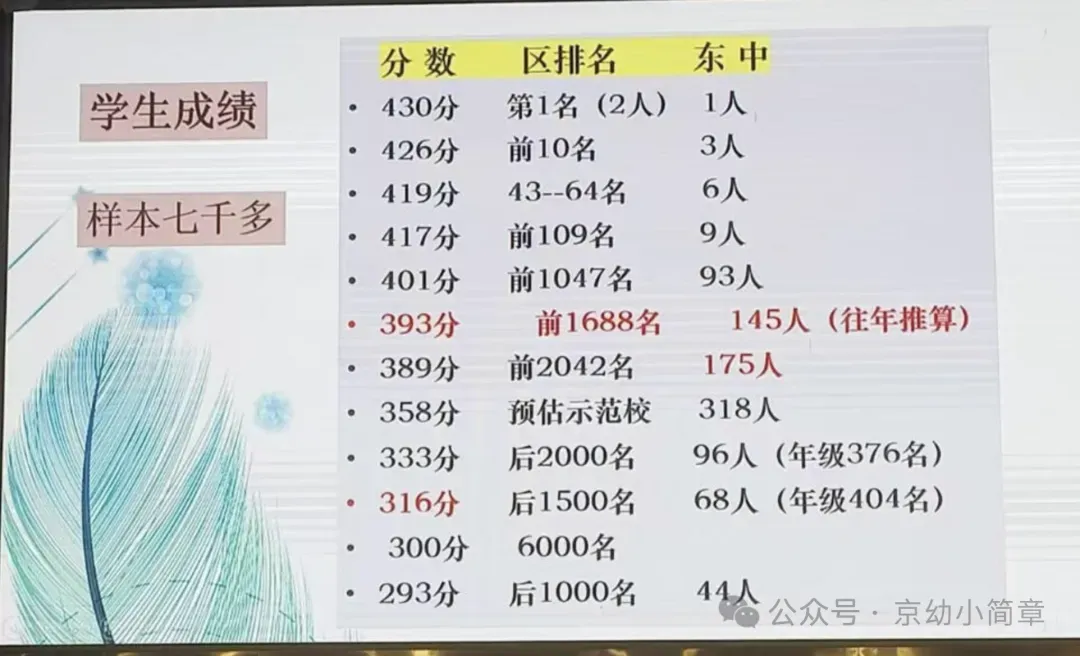 学生成绩
样本七千多
分数 区排名 东中
• 430分 第1名（2人） 1人
• 426分 前10名 3人
• 419分 43--64名 6人
• 417分 前109名 9人
• 401分 前1047名 93人
• 393分 前1688名 145人（往年推算）
• 389分 前2042名 175人
• 358分 预估示范校 318人
• 333分 后2000名 96人（年级376名）
• 316分 后1500名 68人（年级404名）
• 300分 6000名
• 293分 后1000名 44人
公众号·京幼小简章